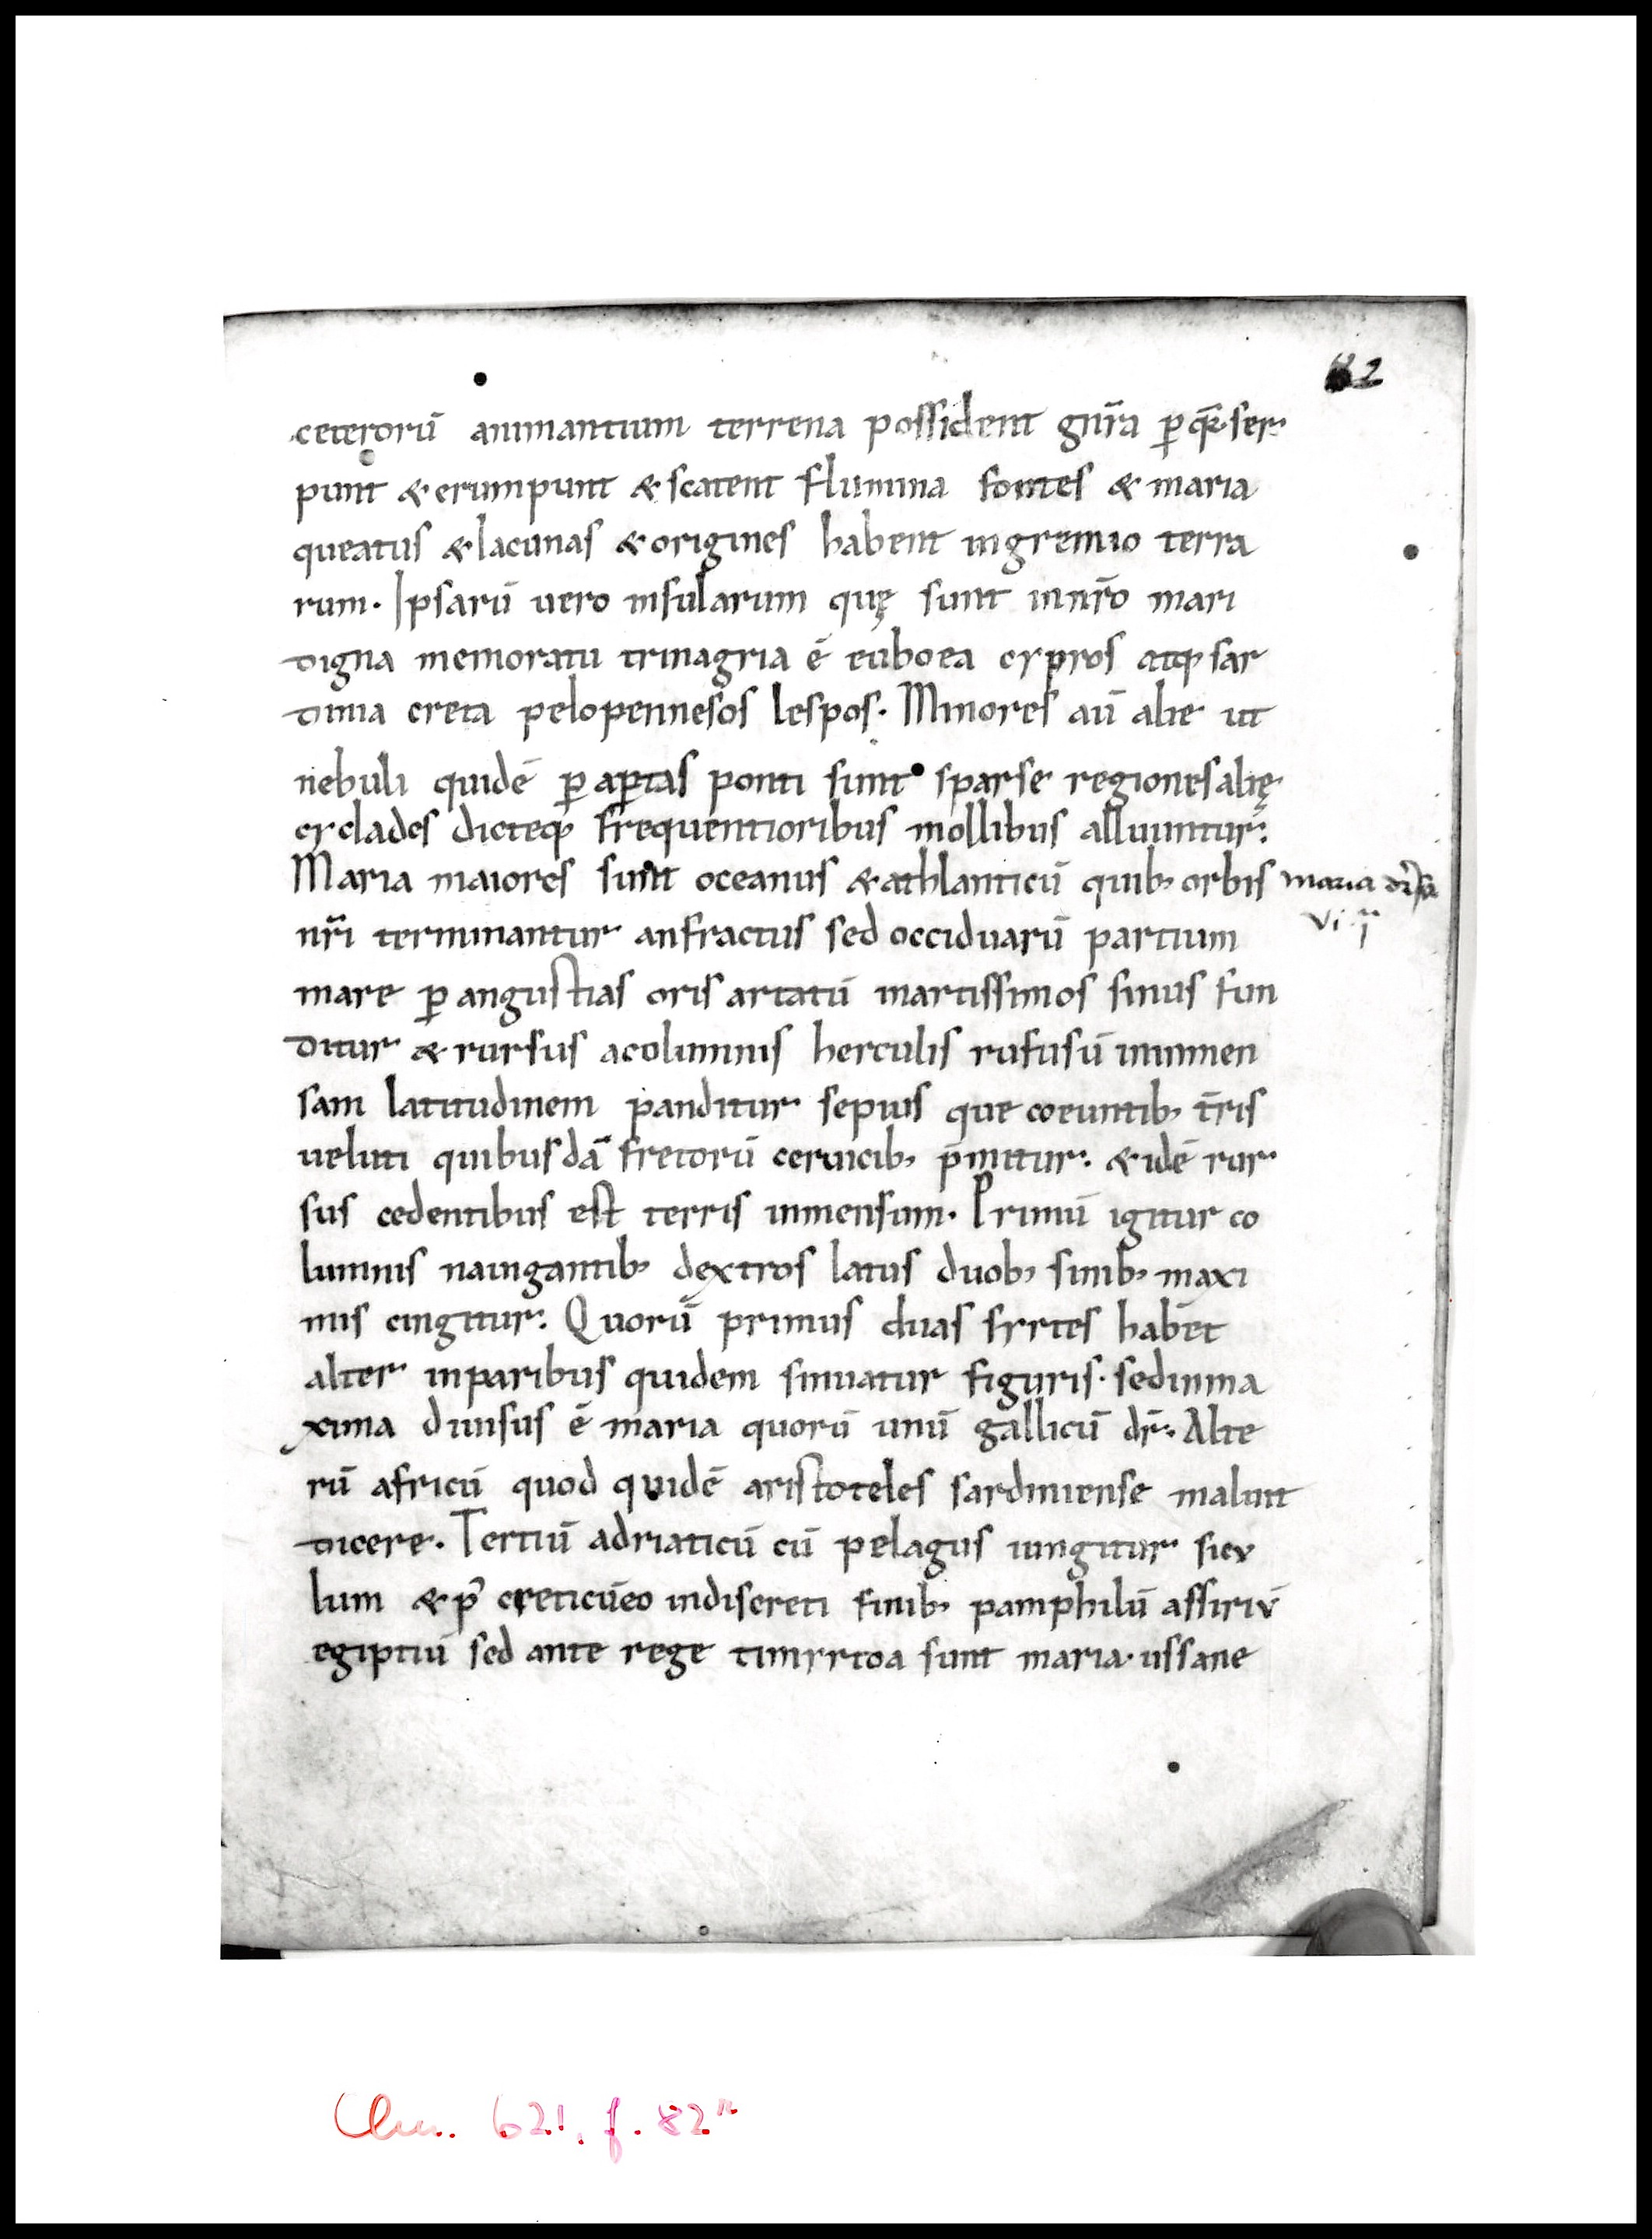 82
ceterorū animantium terrena possident gnr̄a ꝑ qr̄ ser
punt & erumpunt & scatent flumina fontes & maria
queatus & lacunas & origines habent ingremio terra
rum. Ipsarū uero insularum quę sunt innr̄o mari
digna memoratu trinagria ē eúboea cypros atq; sar
dinia creta pelopennesos lespos. Minores aū alie ut
nebuli quidē ꝑ aꝑtas ponti sunt sparse regiones alię
cyclades dicteq; frequentioribus mollibus alluuntur:
Maria maiores sunt oceanus & athlanticū quib; orbis
maria
vi
nr̄i terminantur anfractus sed occiduarū partium
mare ꝑ angustias oris artatū martissimos sinus fun
ditur & rursus acolumnis herculis rufusū inmen
sam latitudinem panditur sepius que coeuntib; t̄ris
ueluti quibusdā fretorū ceruicib; p̄mittur: & idē rur
sus cedentibus est terris inmensum. Primū igitur co
lumnis nauigantib; dextros latus duob; sinib; maxi
mis cingitur: Quorū primus duas syrtes habet
alter inparibus quidem sinuatur figuris. sedinma
xima diuisus ē maria quorū unū gallicū dr̄. Alte
rū africū quod quidē aristoteles sardiniense malunt
dicere. Tertiū adriaticū cū pelagus iungitur sicv
lum & p᷒ creticūeo indiscreti finib; pamphilū assiriv̄
egiptiū sed ante rege timyrtoa sunt maria. ussane
Clm. 621, f. 82r